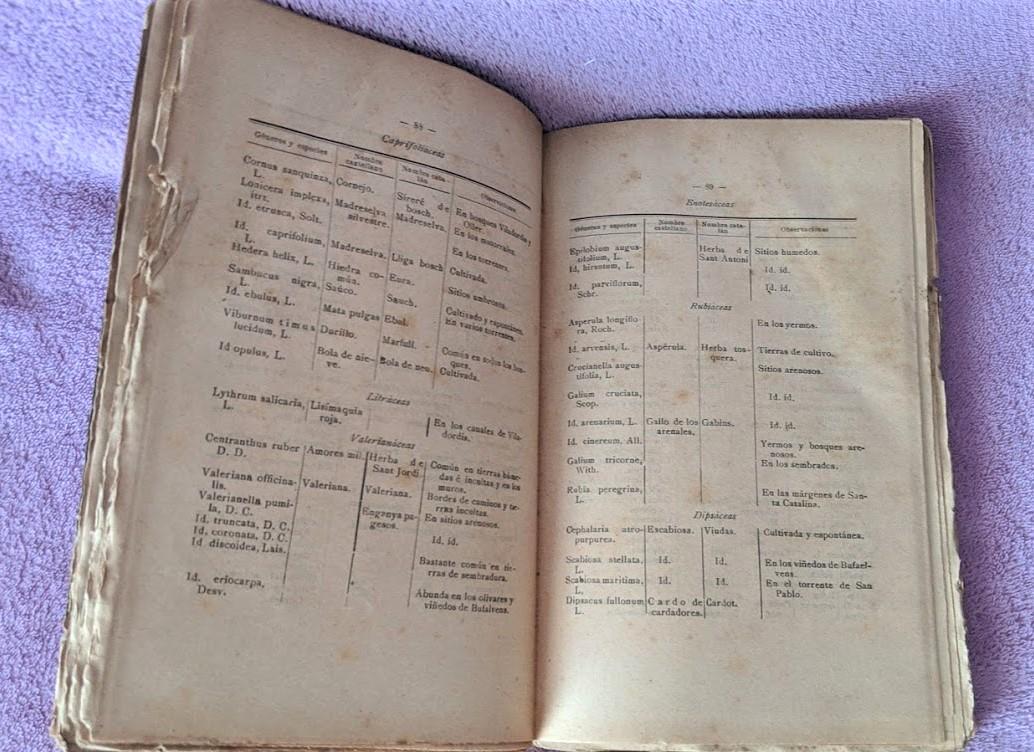 — 88 —
Caprifoliáceas
Géneros y especies Nombre castellano Nombre catalán Observaciones
Cornus sanquinza, Cornejo. Sireré de En bosques Viladordis y
L. bosch. Oller.
Lonicera implexa, Madreselva Madreselva. En los matorrales.
itrr. silvestre.
Id. etrusca, Solt. En los torrentes.
Id. caprifolium, Madreselva. Lliga bosch Cultivada.
L.
Hedera helix, L. Hiedra co- Eura. Sitios umbrosos.
mún.
Sambucus nigra, Saúco. Sauch. Cultivado y espontáneo.
L.
Id. ebulus, L. Mata pulgas Ebol. En varios torrentes.
Viburnum timus Durillo. Marfull. Común en todos los bos-
lucidum, L. ques.
Id opulus, L. Bola de nie- Bola de neu. Cultivada.
ve.
Litráceas
Lythrum salicaria, Lisimaquia En los canales de Vila-
L. roja. dordis.
Valerianáceas
Centranthus ruber Amores mil. Herba de Común en tierras húme-
D. D. Sant Jordi. das é incultas y en los
muros.
Valeriana officina- Valeriana. Valeriana. Bordes de caminos y tie-
lis. rras incultas.
Valerianella pumi- Enganya pa- En sitios arenosos.
la, D. C. gesos.
Id. truncata, D. C. Id. id.
Id. coronata, D. C.
Id. discoidea, Lais. Bastante común en tie-
rras de sembradura.
Id. eriocarpa, Abunda en los olivares y
Desv. viñedos de Bufalvens.
— 89 —
Enoteáceas
Géneros y especies Nombre castellano Nombre catalán Observaciones
Epilobium augus- Herba de Sitios humedos.
tifolium, L. Sant Antoni
Id, hirsutum, L. Id. id.
Id. parviflorum, Id. id.
Schr.
Rubiáceas
Asperula longiflo- En los yermos.
ra, Roch.
Id. arvensis, L. Aspérula. Herba tos- Tierras de cultivo.
quera.
Crucianella augus- Sitios arenosos.
tifolia, L.
Galium cruciata, Id. id.
Scop.
Id. arenarium, L. Gallo de los Gabins. Id. id.
arenales.
Id. cinereum, All. Yermos y bosques are-
nosos.
Galium tricorne, En los sembrados.
With.
Rubia peregrina, En las márgenes de San-
L. ta Catalina.
Dipsáceas
Cephalaria atro- Escabiosa. Viudas. Cultivada y espontánea.
purpurea.
Scabiosa stellata, Id. Id. En los viñedos de Bufael-
L. vens.
Scabiosa maritima, Id. Id. En el torrente de San
L. Pablo.
Dipsacus fullonum Cardo de Cardot.
L. cardadores.